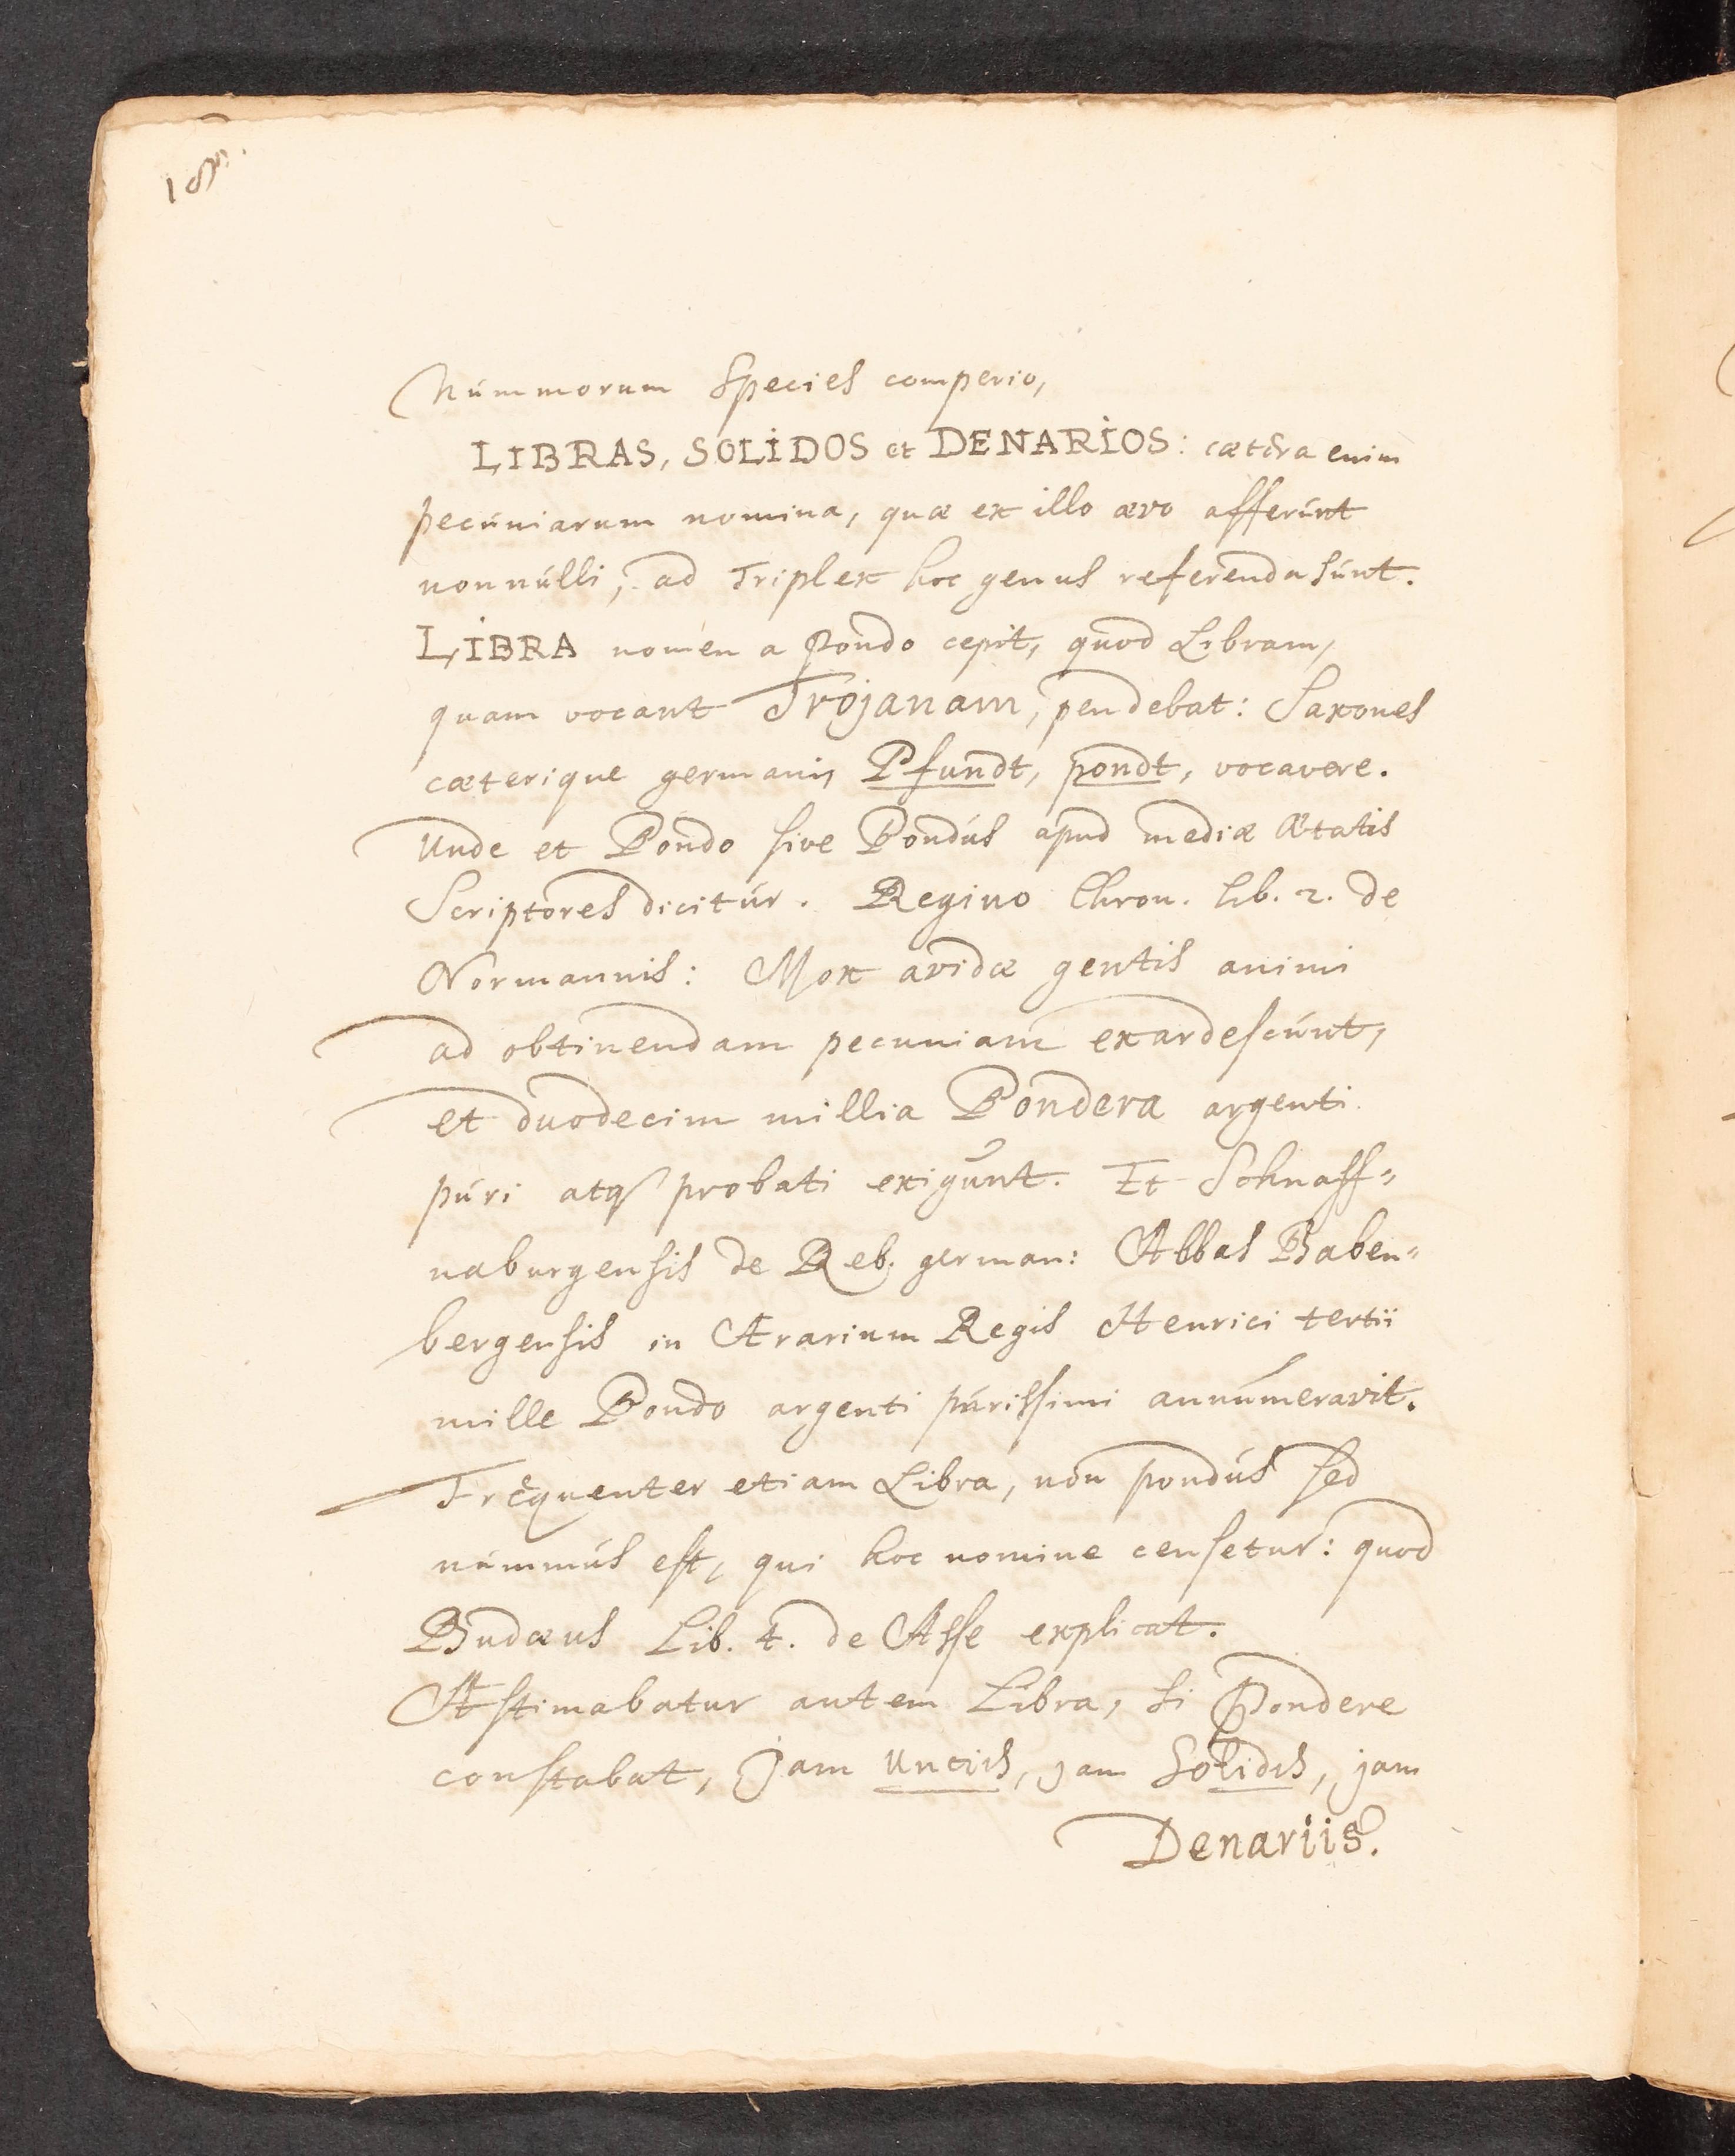 Nummorum Species comperio,
LIBRAS, SOLIDOS et DENARIOS: cætera enim
pecuniarum nomina, quæ ex illo ævo afferunt
nonnulli, ad Triplex hoc genus referenda sunt.
LIBRA nomen a Pondo cepit, quod Libram,
quam vocant Trojanam, pendebat: Saxones
cæterique germani, Pfundt, pondt, vocavere.
Unde et Pondo sive Pondus apud mediæ Ætatis
Scriptores dicitur. Regino Chron. lib. 2. de
Normannis: Mox avidæ gentis animi
ad obtinendam pecuniam exardescunt,
et duodecim millia Pondera argenti
puri atq probati exigunt. Et Schnaff-
naburgensis de Reb. german: Abbas Baben-
bergensis in Ærarium Regis Henrici tertii
mille Pondo argenti purissimi annumeravit.
Frequenter etiam Libra, non pondus sed
nummus est, qui hoc nomine censetur: quod
Budæus Lib. 4. de Asse explicat.
Æstimabatur autem Libra, si Pondere
constabat, jam Unciis, jam Solidis, jam
Denariis.